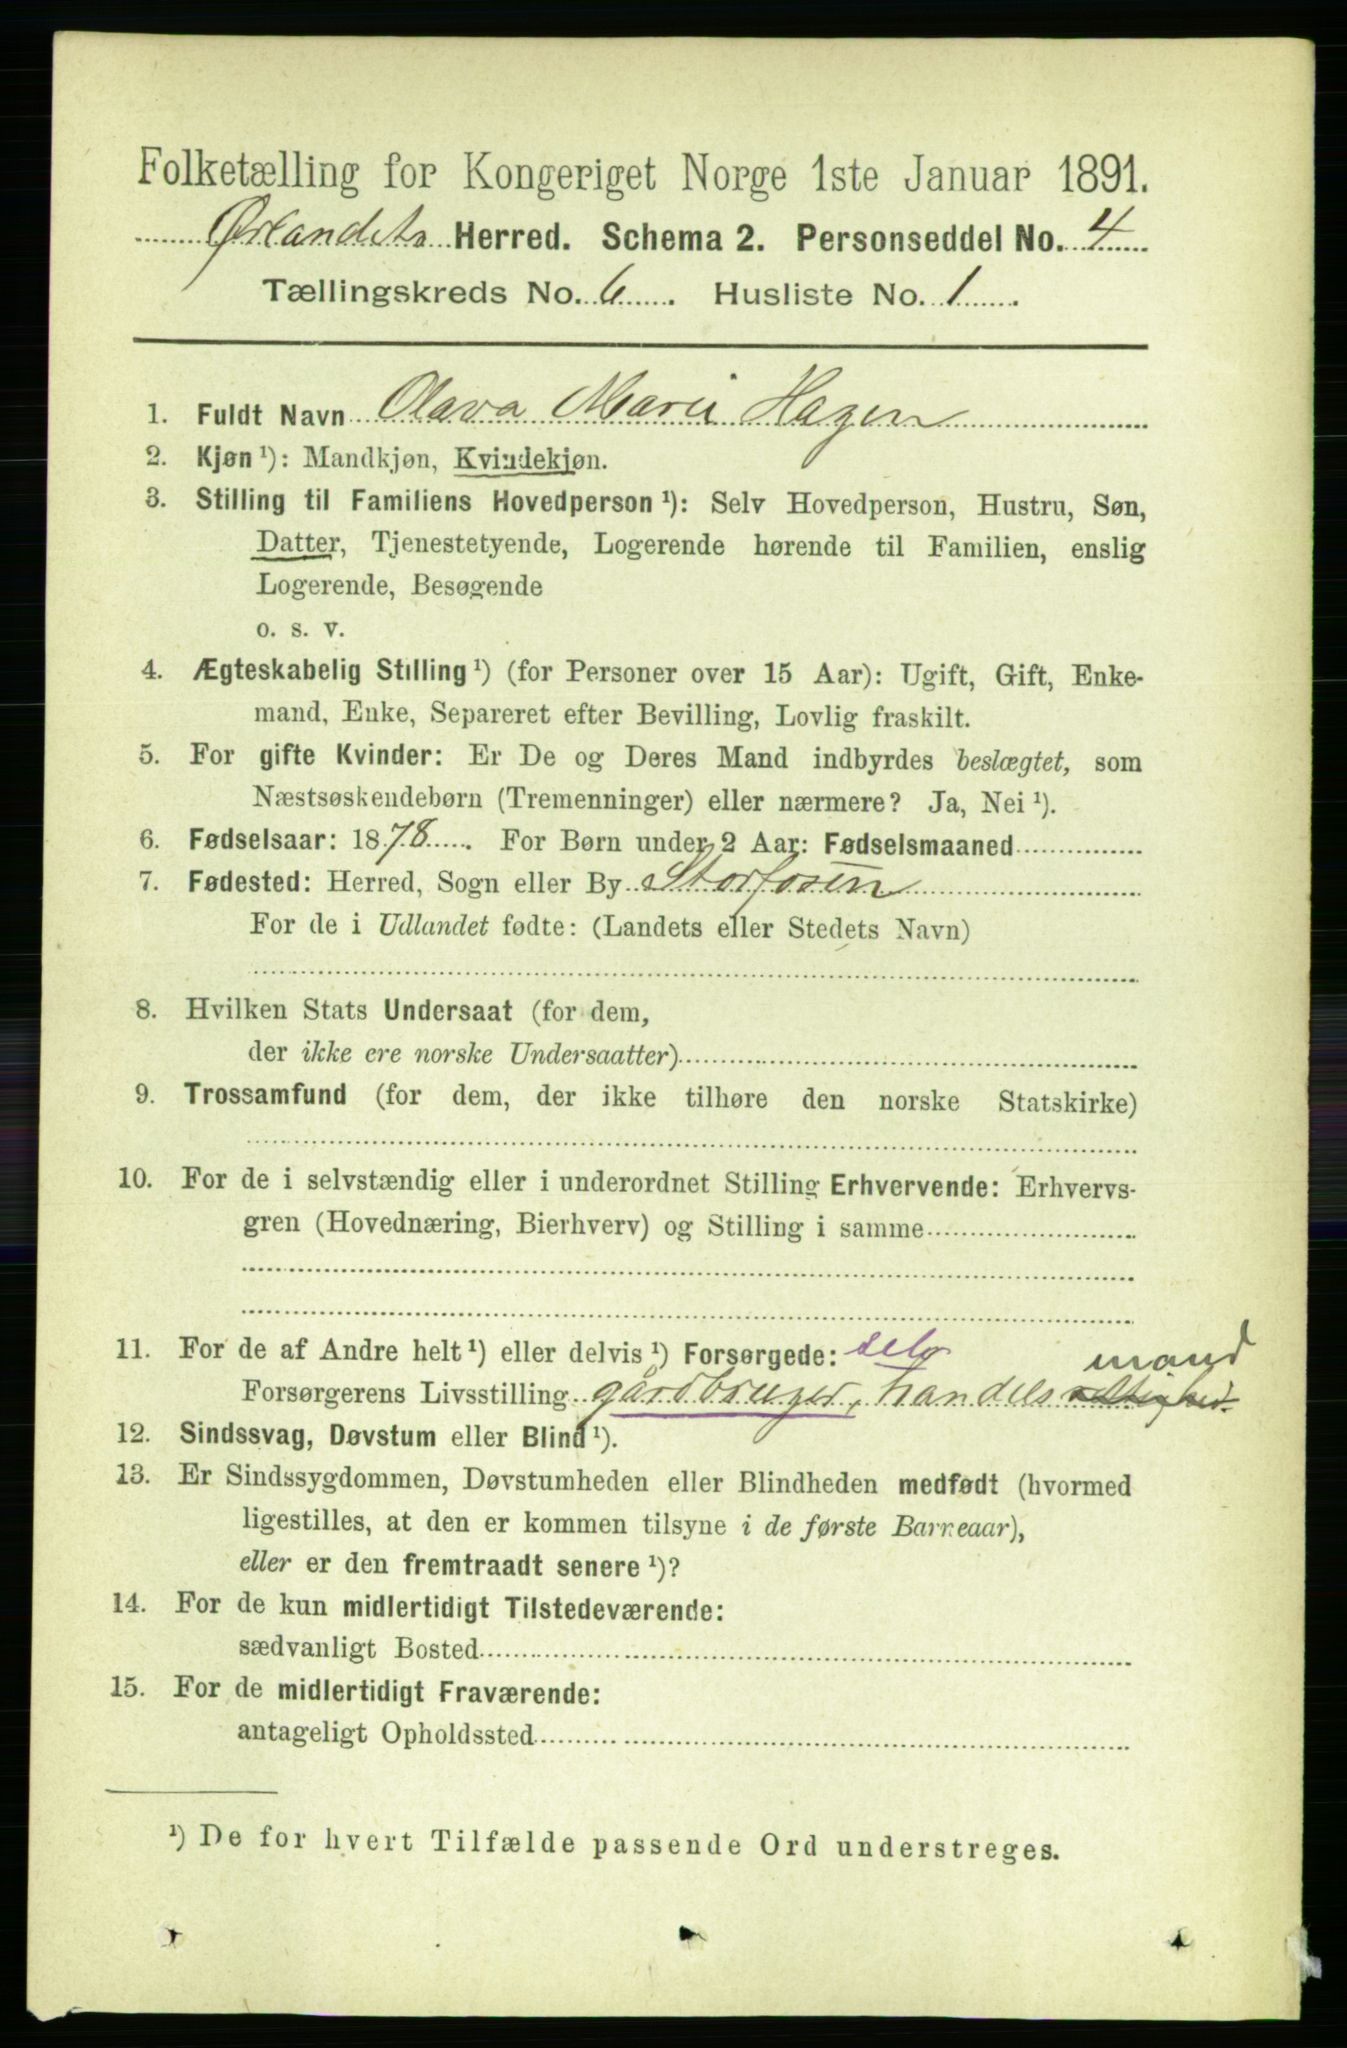 Folketælling for Kongeriget Norge 1ste Januar 1891.
Ørlandets Herred. Schema 2. Personseddel No. 4
Tællingskreds No. 6. Husliste No. 1.
1. Fuldt Navn Olava Marie Hagen
2. Kjøn ¹): Mandkjøn, Kvindekjøn.
3. Stilling til Familiens Hovedperson ¹): Selv Hovedperson, Hustru, Søn,
Datter, Tjenestetyende, Logerende hørende til Familien, enslig
Logerende, Besøgende
o. s. v.
4. Ægteskabelig Stilling ¹) (for Personer over 15 Aar): Ugift, Gift, Enke-
mand, Enke, Separeret efter Bevilling, Lovlig fraskilt.
5. For gifte Kvinder: Er De og Deres Mand indbyrdes beslægtet, som
Næstsøskendebørn (Tremenninger) eller nærmere? Ja, Nei ¹).
6. Fødselsaar: 1878. For Børn under 2 Aar: Fødselsmaaned
7. Fødested: Herred, Sogn eller By Storfosen
For de i Udlandet fødte: (Landets eller Stedets Navn)
8. Hvilken Stats Undersaat (for dem,
der ikke ere norske Undersaatter)
9. Trossamfund (for dem, der ikke tilhøre den norske Statskirke)
10. For de i selvstændig eller i underordnet Stilling Erhvervende: Erhvervs-
gren (Hovednæring, Bierhverv) og Stilling i samme
11. For de af Andre helt ¹) eller delvis ¹) Forsørgede: selv mand
Forsørgerens Livsstilling gårdbruger, handels
12. Sindssvag, Døvstum eller Blind ¹).
13. Er Sindssygdommen, Døvstumheden eller Blindheden medfødt (hvormed
ligestilles, at den er kommen tilsyne i de første Barneaar),
eller er den fremtraadt senere ¹)?
14. For de kun midlertidigt Tilstedeværende:
sædvanligt Bosted
15. For de midlertidigt Fraværende:
antageligt Opholdssted
¹) De for hvert Tilfælde passende Ord understreges.